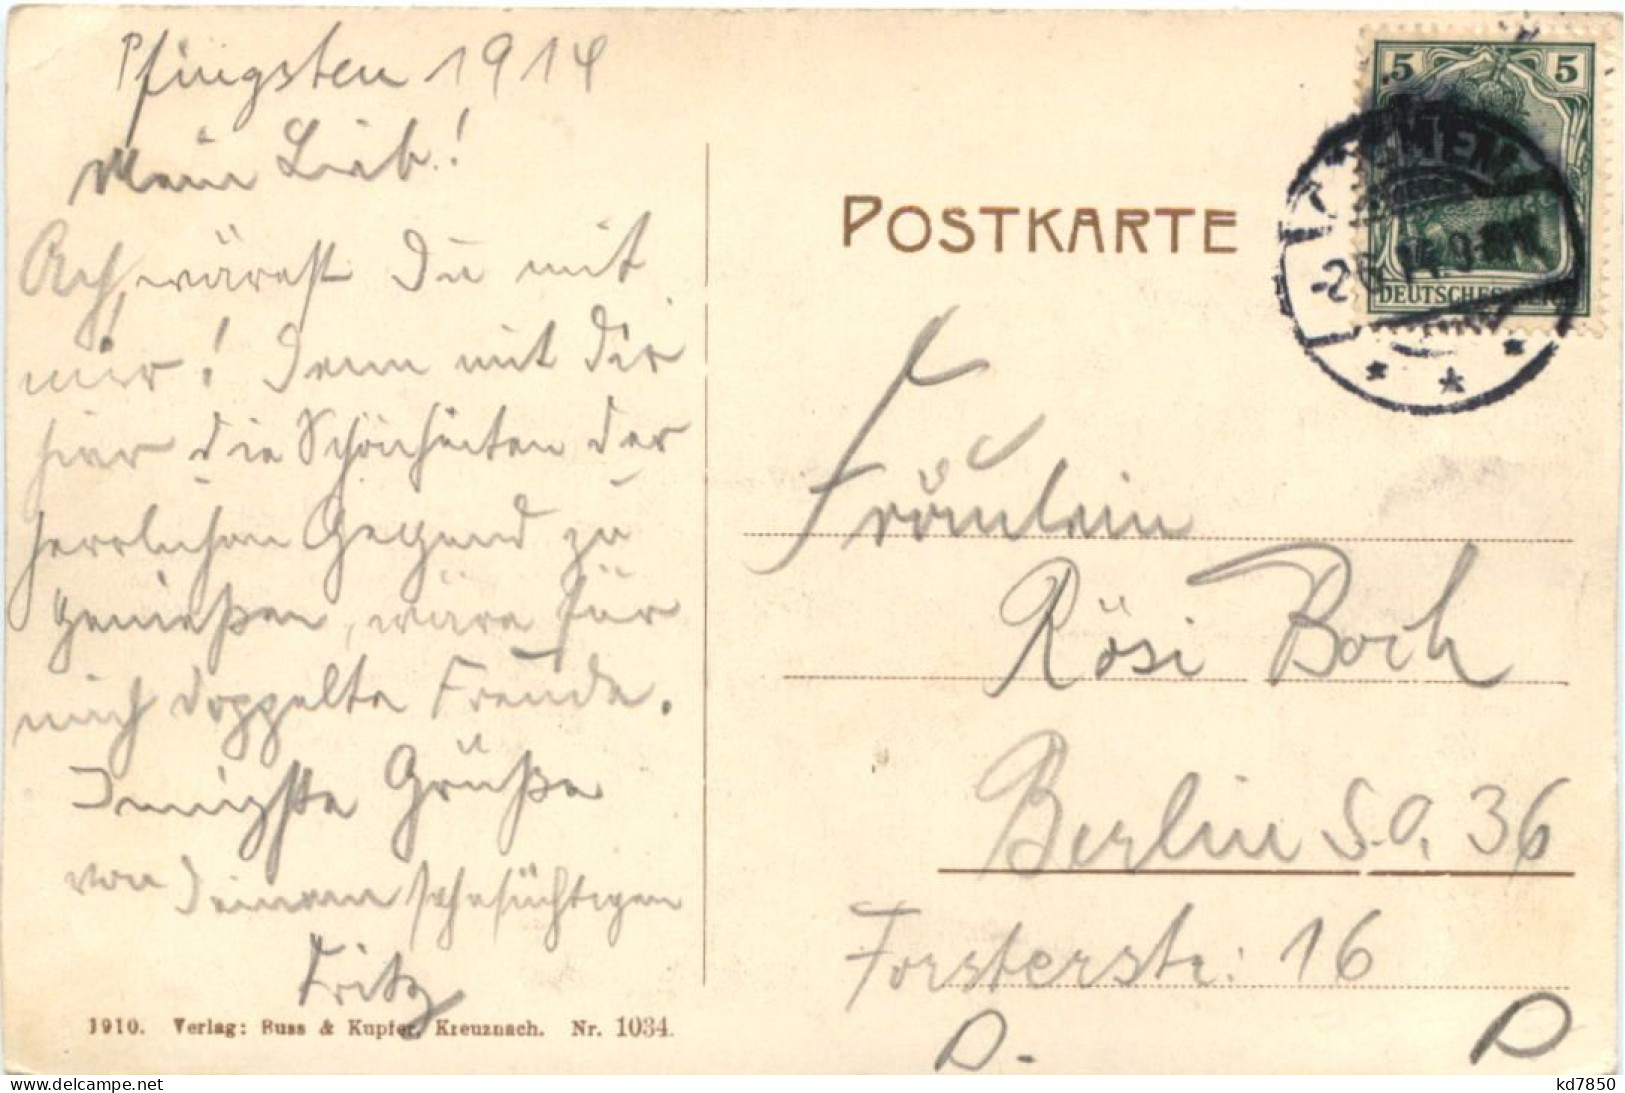 Pfingsten 1914
Mein Lieb!
Ach, wärest Du mit
mir! Denn mit Dir
hier die Schönheiten der
herrlichen Gegend zu
genießen, wäre für
mich doppelte Freude.
Innigste Grüße
von Deinem sehnsüchtigen
Fritz
1910. Verlag: Russ & Kupfer, Kreuznach. Nr. 1034.
POSTKARTE
5 5
DEUTSCHES REICH
-2.6.14.9-
Fräulein
Rösi Bock
Berlin S.O. 36
Forsterstr: 16
D.
D
delcampe.net
kd7850